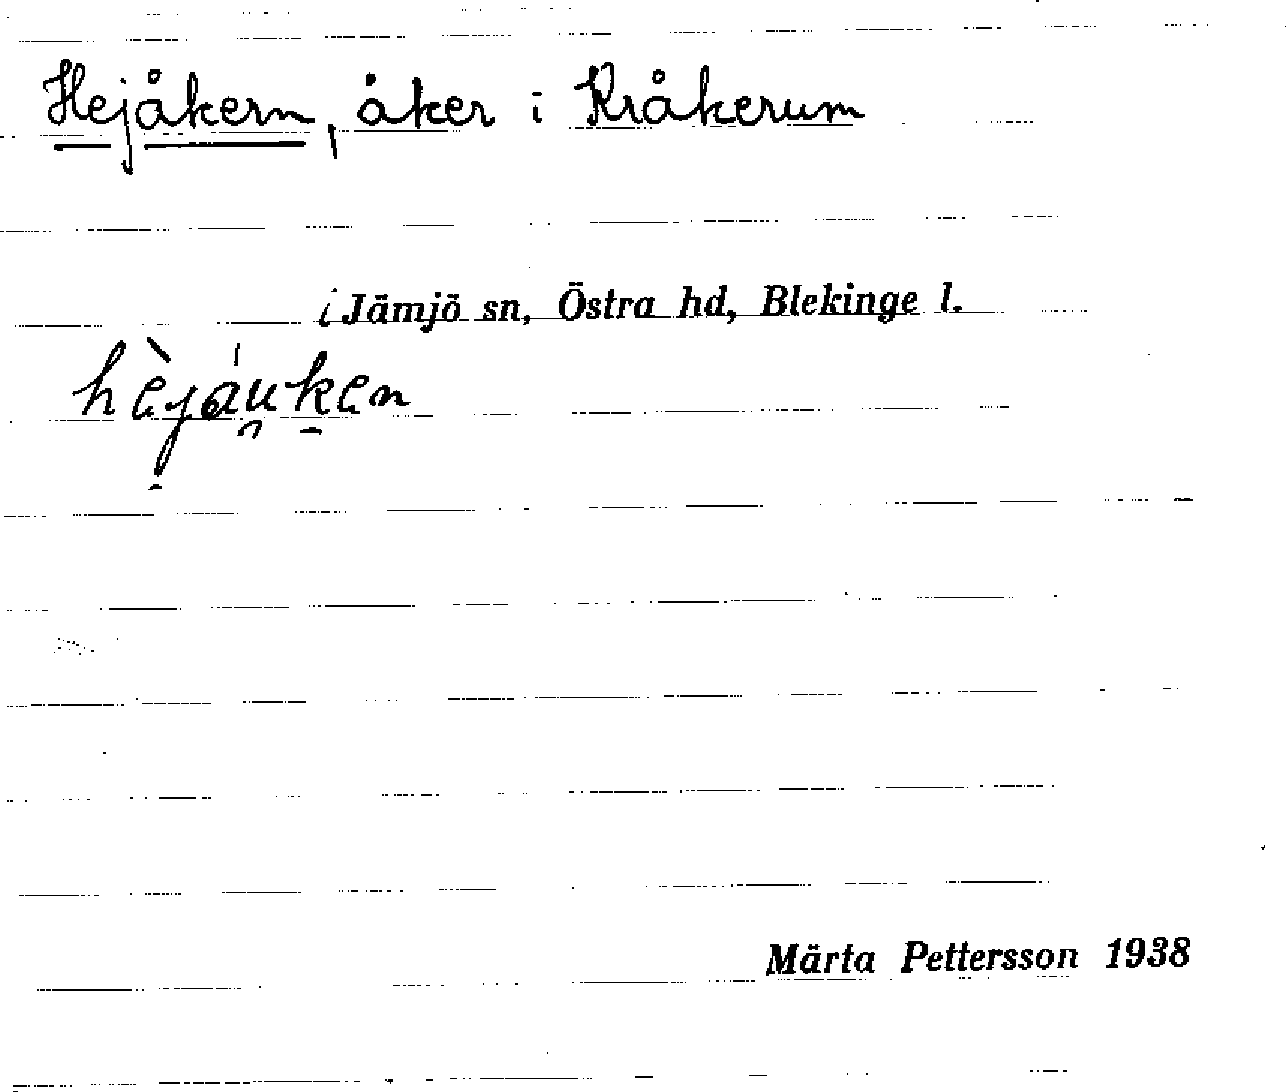 Hejåkern, åker i Kråkerum
i Jämjö sn, Östra hd, Blekinge l.
hèjáu̯ken
Märta Pettersson 1938